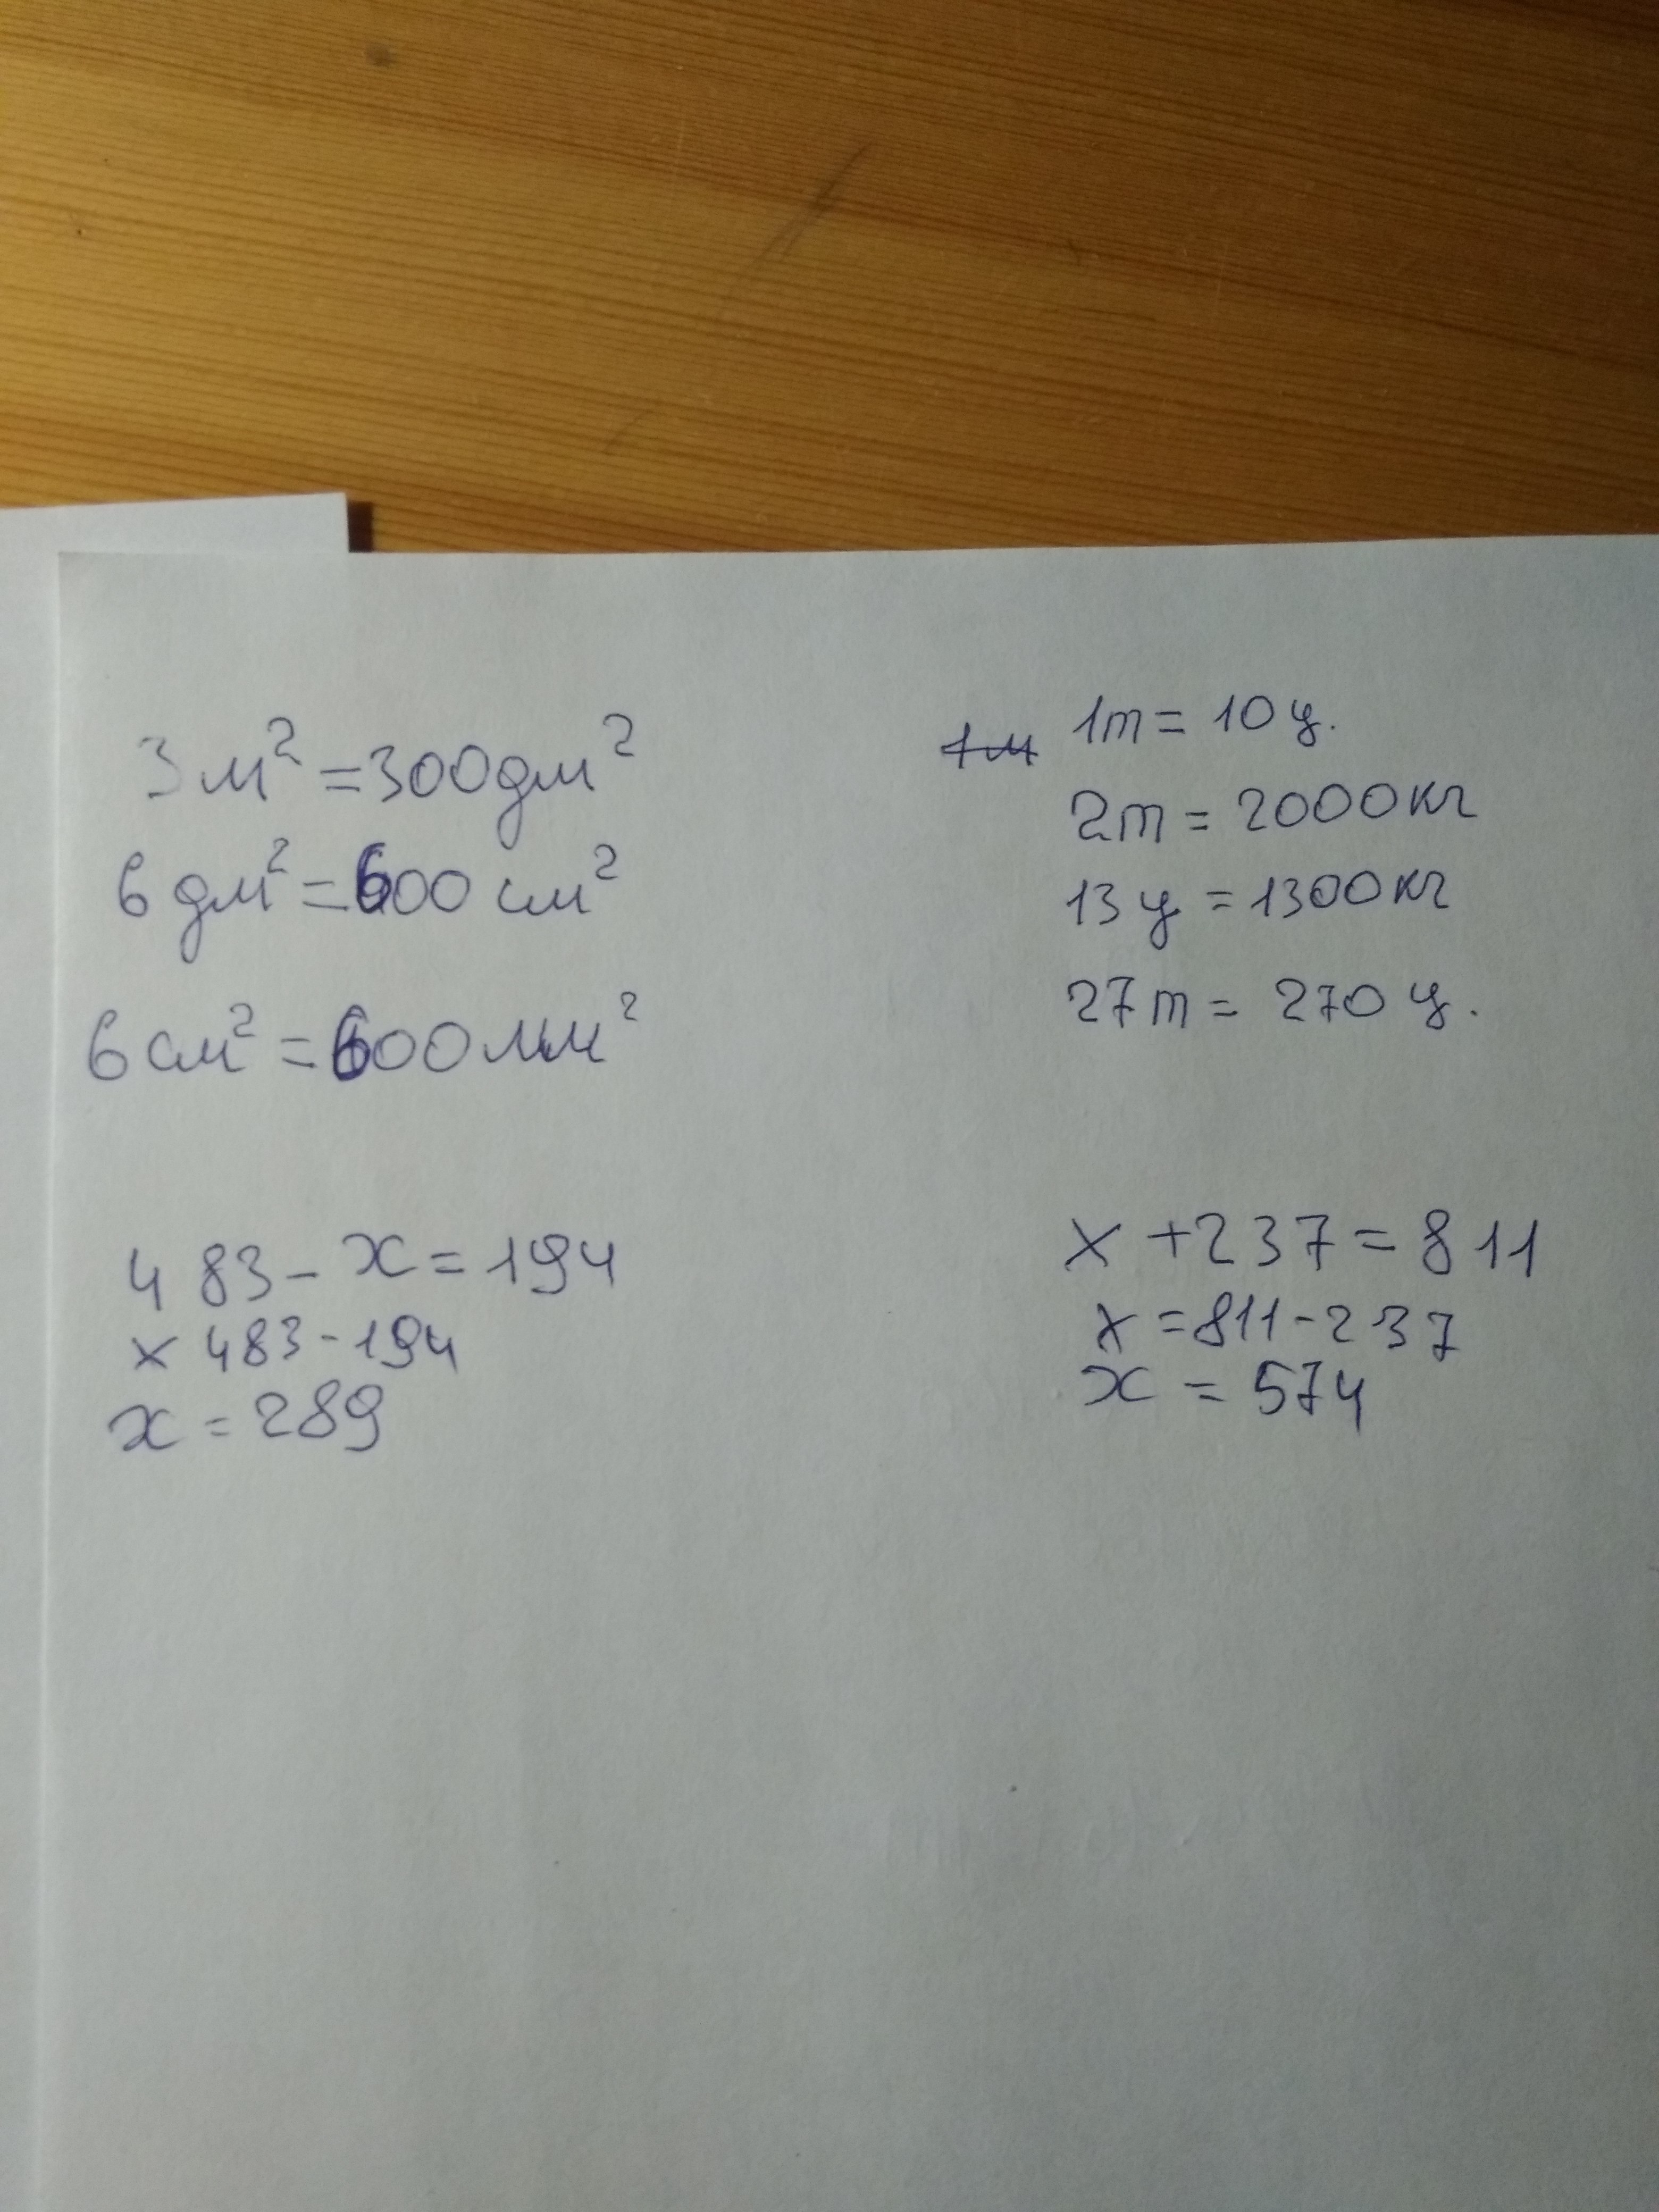 3 м² = 300 дм²
6 дм² = 600 см²
6 см² = 600 мм²
1т = 10 ц.
2т = 2000 кг
13 ц = 1300 кг
27 т = 270 ц.
483 - x = 194
x 483 - 194
x = 289
x + 237 = 811
x = 811 - 237
x = 574